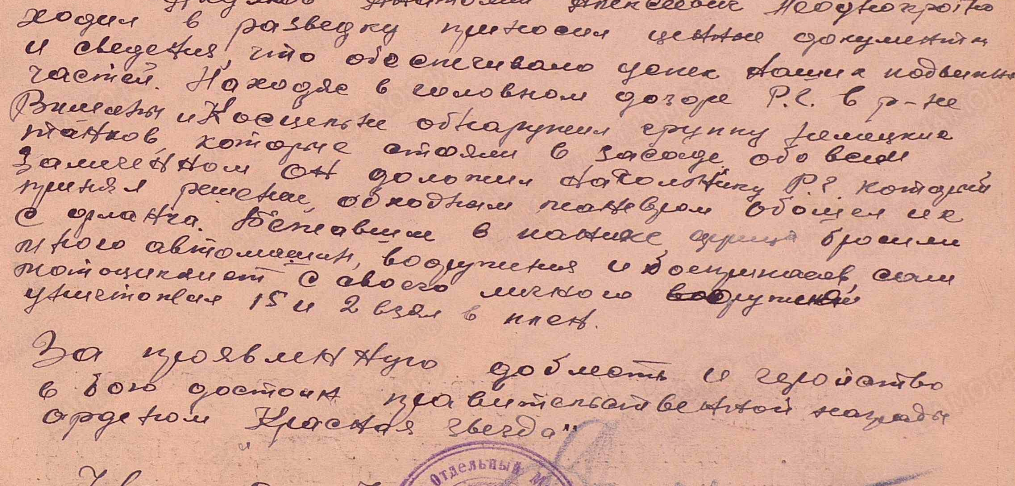 Анатолий Алексеевич Неоднократно
ходил в разведку приносил ценные документы
и сведения, что обеспечивало успех наших подвижных
частей. Находяс в головном дозоре Р.Г. в р-не
и Косцельне обнаружил группу немецких
танков, которые стояли в засаде, обо всем
замеченном он доложил начальнику Р.Г. который
принял решение, обходным маневром обошел их
с фланга. Бежавшие в панике фрицы бросили
много автомашин, вооружения и боеприпаев, сам
мотоциклист с своего личного вооружения
уничтожил 15 и 2 взял в плен.
За проявленную доблесть и геройство
в бою достоин правительственной награды
орденом "Красная звезда"
Отдельный М